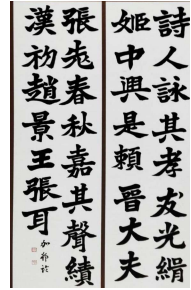 詩人詠其孝友光緝
姬中興是賴晉大夫
張老春秋嘉其聲績
漢初趙景王張耳